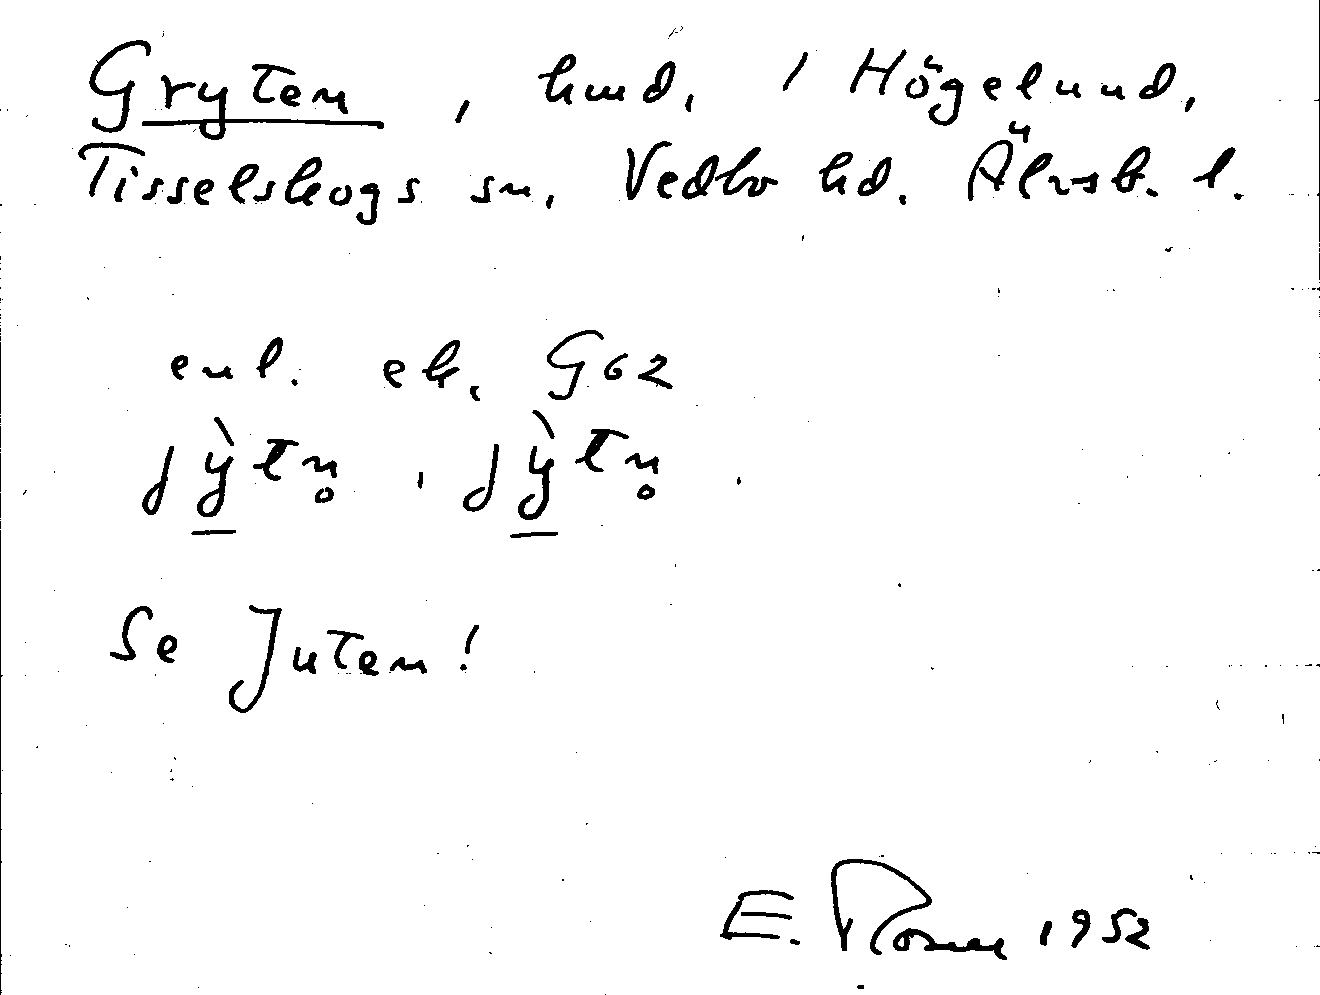 Gryten, hmd, / Högelund,
Tisselskogs sn, Vedbo hd. Älvsb. l.
enl. ek. G62
jỳ̲tn̥, jỳ̲tn̥.
Se Juten!
E. Rosell 1952